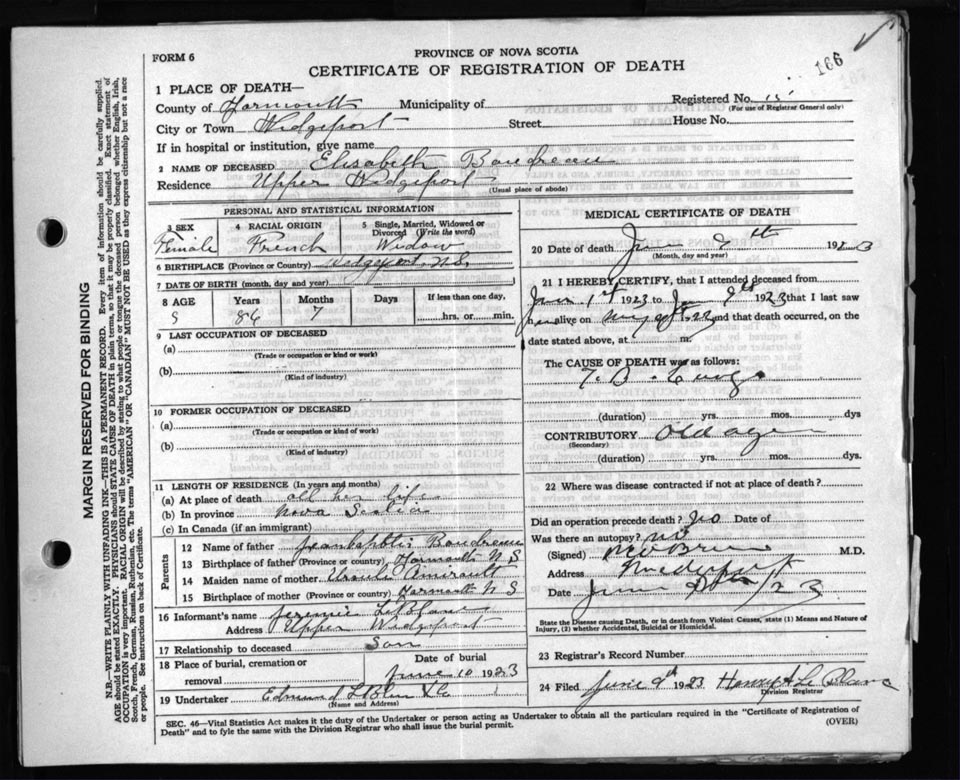 166
FORM 6
PROVINCE OF NOVA SCOTIA
CERTIFICATE OF REGISTRATION OF DEATH
1 PLACE OF DEATH—
County of Yarmouth Municipality of Registered No. 15
(For use of Registrar General only)
City or Town Wedgeport Street House No.
If in hospital or institution, give name
2 NAME OF DECEASED Elisabeth Boudreau
Residence Upper Wedgeport
(Usual place of abode)
PERSONAL AND STATISTICAL INFORMATION
3 SEX 4 RACIAL ORIGIN 5 Single, Married, Widowed or Divorced (Write the word)
Female French Widow
6 BIRTHPLACE (Province or Country) Wedgeport, N.S.
7 DATE OF BIRTH (month, day and year)
8 AGE Years Months Days If less than one day,
86 7 hrs. or min.
9 LAST OCCUPATION OF DECEASED
(a)
(Trade or occupation or kind or work)
(b)
(Kind of industry)
10 FORMER OCCUPATION OF DECEASED
(a)
(Trade or occupation or kind of work)
(b)
(Kind of industry)
11 LENGTH OF RESIDENCE (In years and months)
(a) At place of death all her life
(b) In province Nova Scotia
(c) In Canada (if an immigrant)
Parents
12 Name of father Boudreau
13 Birthplace of father (Province or country) Yarmouth N S
14 Maiden name of mother Ursule Amirault
15 Birthplace of mother (Province or country) Yarmouth N S
16 Informant's name Jeremie LeBlanc
Address Upper Wedgeport
17 Relationship to deceased Son
18 Place of burial, cremation or removal Date of burial
June 10 1923
19 Undertaker Edmund
(Name and Address)
MEDICAL CERTIFICATE OF DEATH
20 Date of death June th 1923
(Month, day and year)
21 I HEREBY CERTIFY, that I attended deceased from
June 1st 1923 to June 1923 that I last saw
her alive on and that death occurred, on the
date stated above, at m.
The CAUSE OF DEATH was as follows:
T. B. Lungs
(duration) yrs. mos. dys
CONTRIBUTORY Old age
(Secondary)
(duration) yrs. mos. dys.
22 Where was disease contracted if not at place of death?
Did an operation precede death? No Date of
Was there an autopsy? No
(Signed) M.D.
Address Wedgeport
Date June 23
State the Disease causing Death, or in death from Violent Causes, state (1) Means and Nature of Injury, (2) whether Accidental, Suicidal or Homicidal.
23 Registrar's Record Number
24 Filed June 9th 1923 Henry A Le Blanc
Division Registrar
SEC. 46—Vital Statistics Act makes it the duty of the Undertaker or person acting as Undertaker to obtain all the particulars required in the "Certificate of Registration of
Death" and to fyle the same with the Division Registrar who shall issue the burial permit.
(OVER)
MARGIN RESERVED FOR BINDING
N.B.—WRITE PLAINLY WITH UNFADING INK—THIS IS A PERMANENT RECORD. Every item of information should be carefully supplied.
AGE should be stated EXACTLY. PHYSICIANS should STATE CAUSE OF DEATH in plain terms, so that it may be properly classified. Exact statement of
OCCUPATION is very important. RACIAL ORIGIN will be described by stating to what people or tongue the deceased person belonged whether English, Irish,
Scotch, French, German, Russian, Ruthenian, etc. The terms "AMERICAN" OR "CANADIAN" MUST NOT BE USED as they express citizenship but not a race
or people. See instructions on back of Certificate.